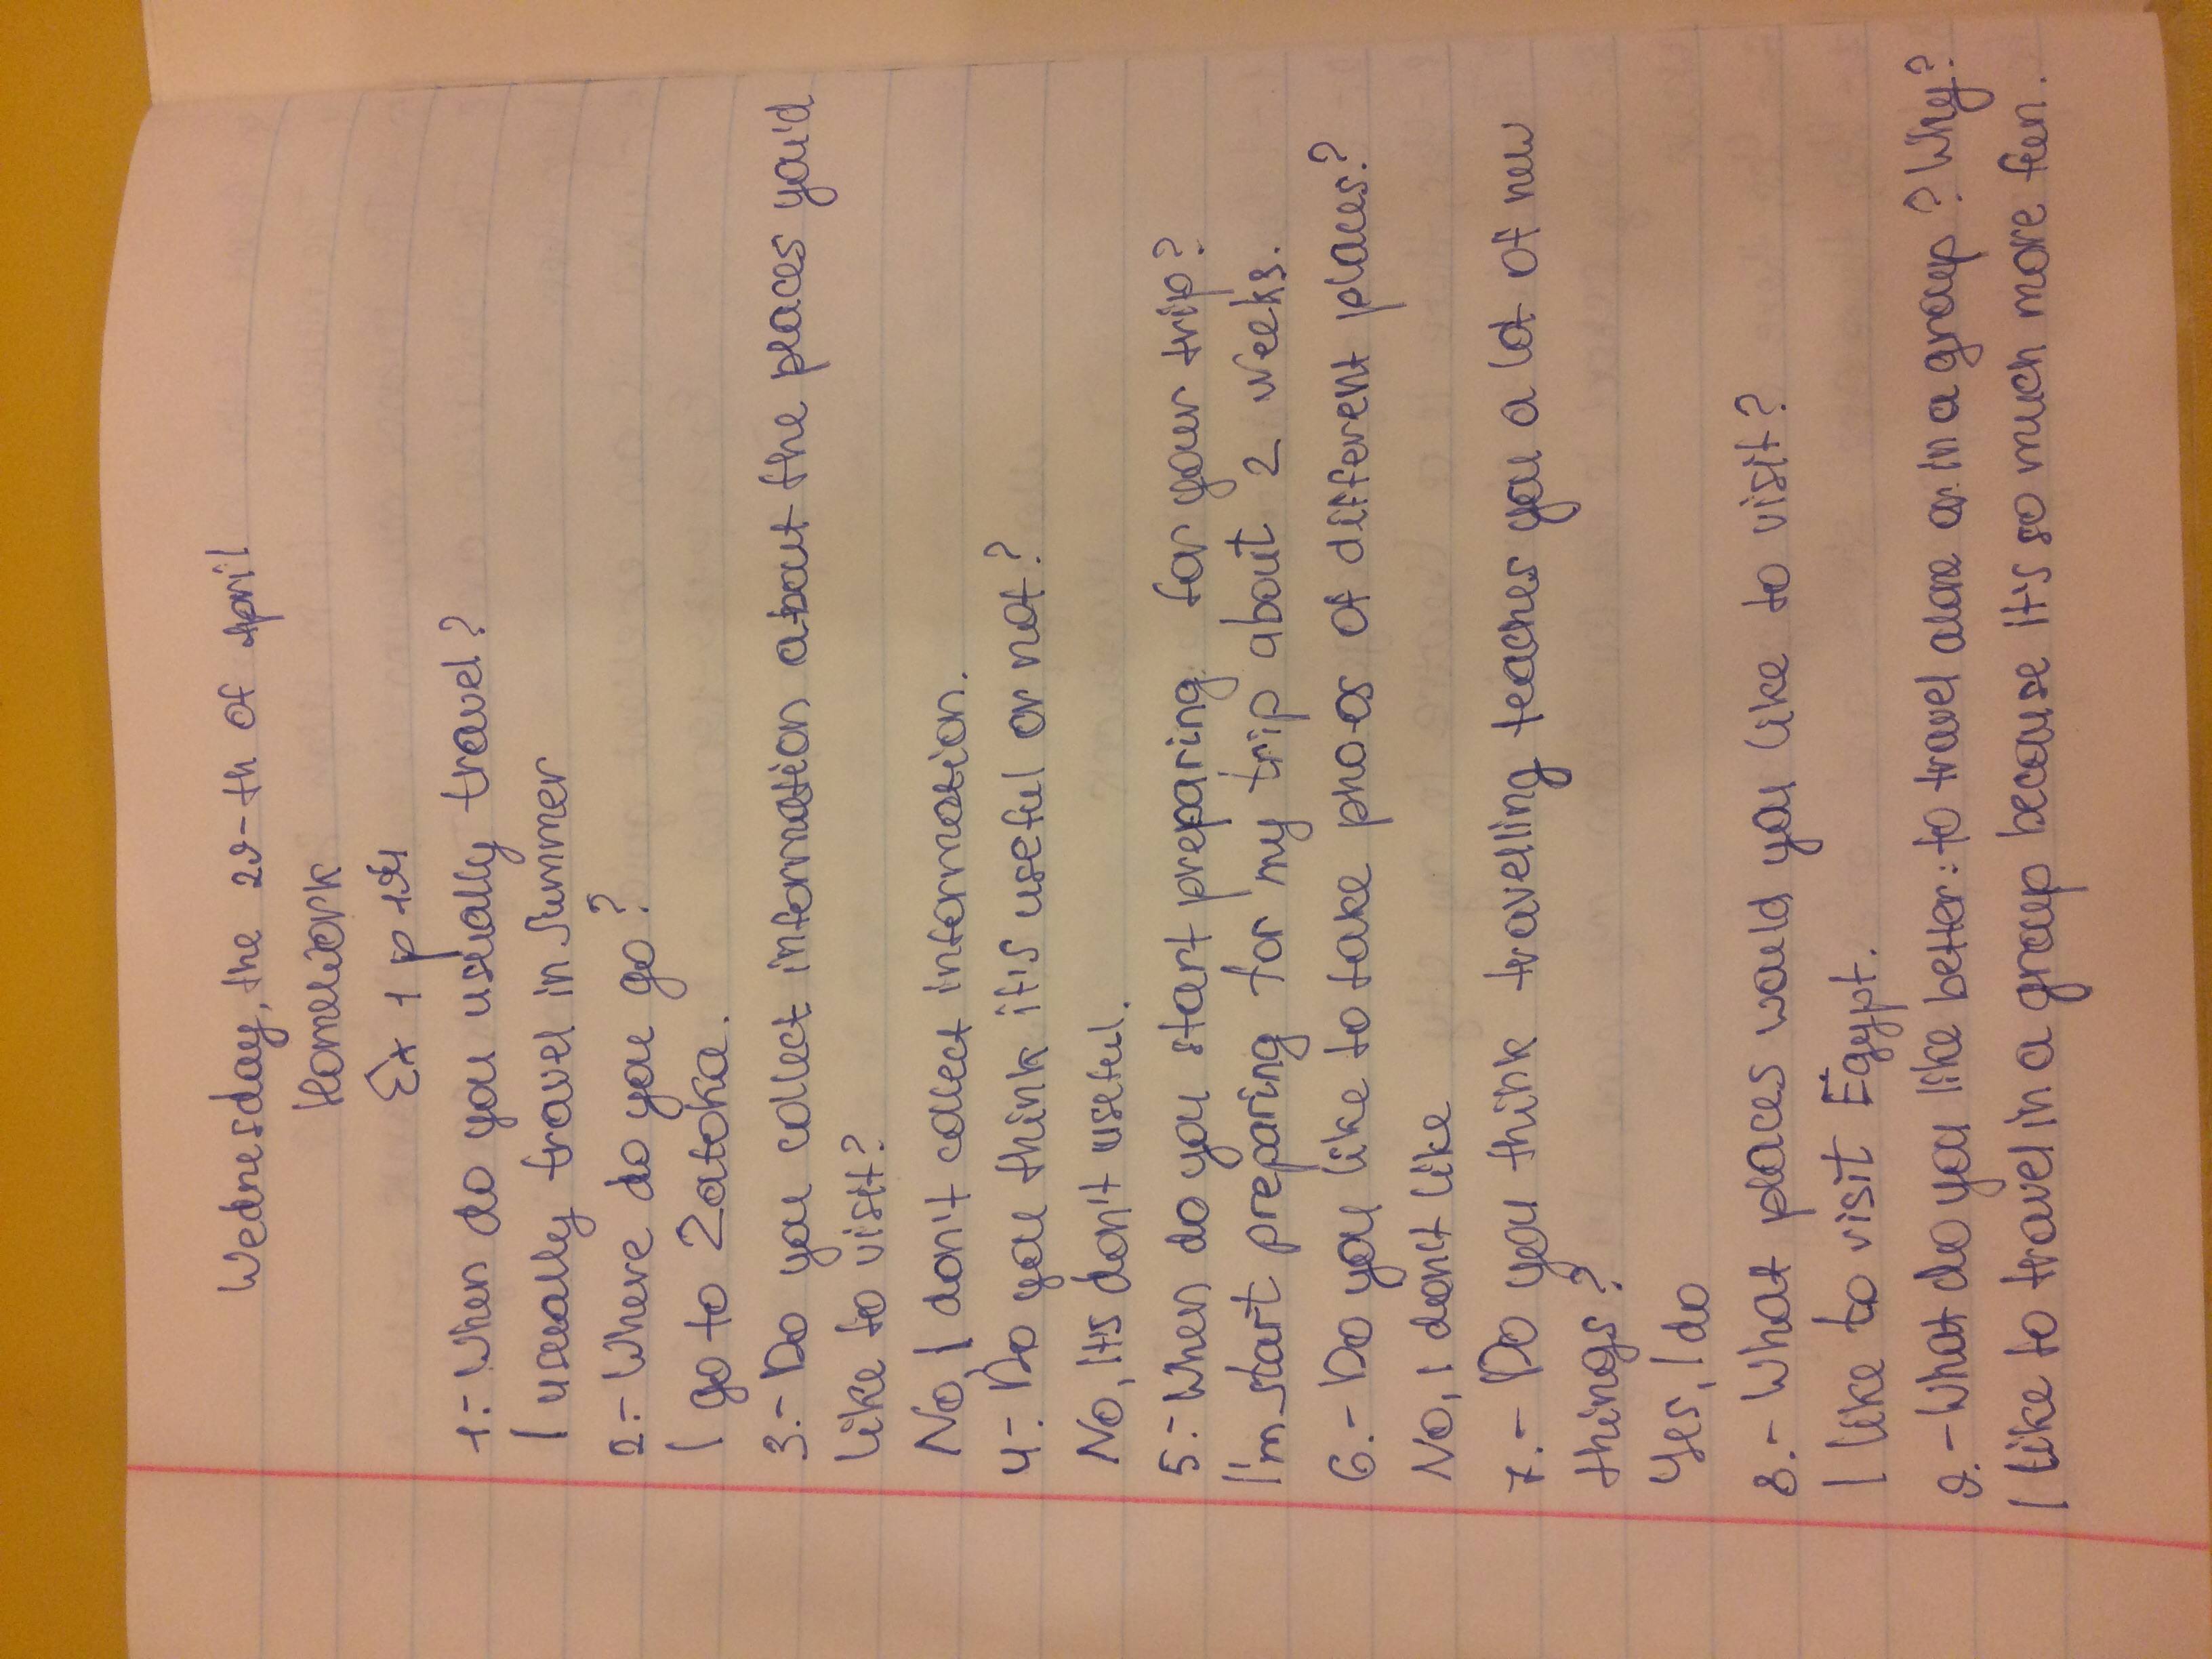 Wednesday, the 29-th of April
Homework
Ex 1 p 194
1.- When do you usually travel?
I usually travel in summer
2.- Where do you go?
I go to Zatoka.
3.- Do you collect information about the places you'd
like to visit?
No, I don't collect information.
4-. Do you think it's useful or not?
No, It's don't useful.
5.- When do you start preparing for your trip?
I'm start preparing for my trip about 2 weeks.
6.- Do you like to take photos of different places?
No, I don't like
7.- Do you think travelling teaches you a lot of new
things?
Yes, I do
8.- What places would you like to visit?
I like to visit Egypt.
9.- What do you like better: to travel alone or in a group? Why?
I like to travel in a group because it's so much more fun.